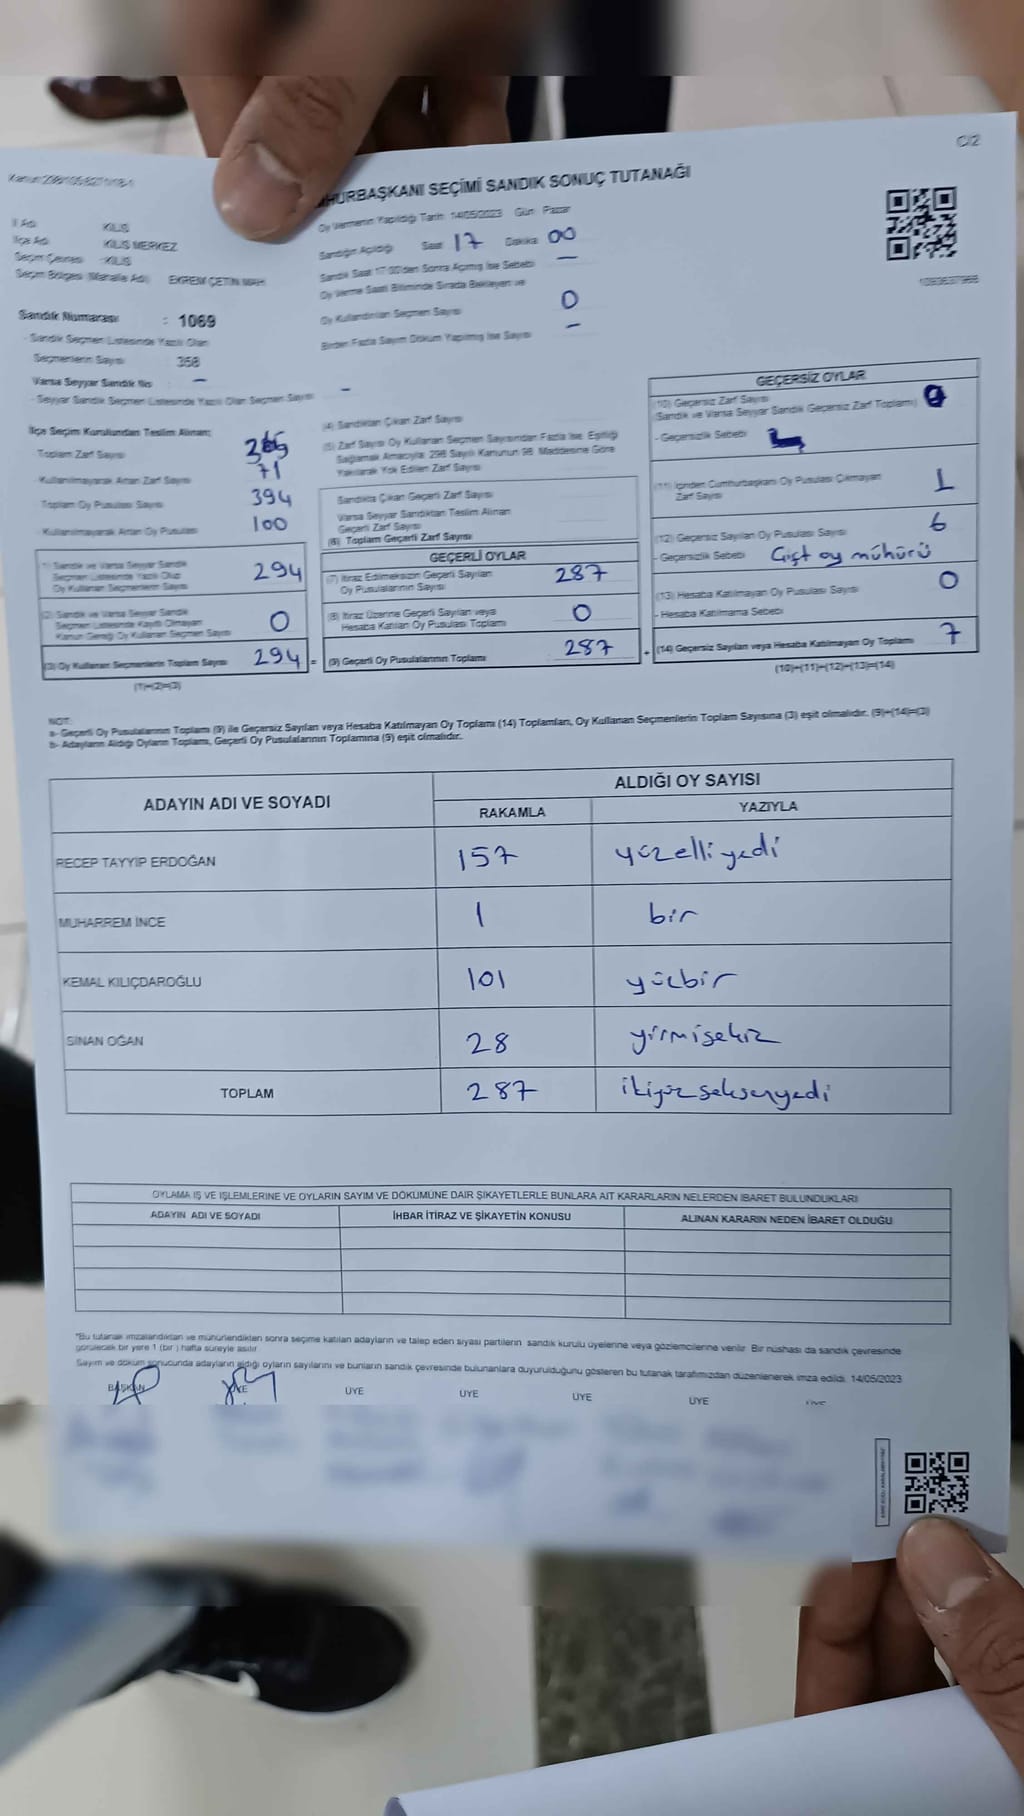 C/2
HURBAŞKANI SEÇİMİ SANDIK SONUÇ TUTANAĞI
Oy Vermenin Yapıldığı Tarih 14/05/2023 Gün Pazar
İl Adı KİLİS
İlçe Adı KİLİS MERKEZ
Seçim Çevresi KİLİS
Seçim Bölgesi (Mahalle Adı) EKREM ÇETİN MAH.
Sandığın Açıldığı Saat 17 Dakika 00
Sandık Saat 17.00'den Sonra Açılmış İse Sebebi —
Oy Verme Saati Bitiminde Sırada Bekleyen ve
Oy Kullandırılan Seçmen Sayısı 0
Birden Fazla Sayım Döküm Yapılmış İse Sayısı —
Sandık Numarası : 1069
- Sandık Seçmen Listesinde Yazılı Olan
Seçmenlerin Sayısı 358
Varsa Seyyar Sandık No —
- Seyyar Sandık Seçmen Listesinde Yazılı Olan Seçmen Sayısı —
İlçe Seçim Kurulundan Teslim Alınan;
Toplam Zarf Sayısı
- Kullanılmayarak Artan Zarf Sayısı 71
Toplam Oy Pusulası Sayısı 394
- Kullanılmayarak Artan Oy Pusulası 100
(1) Sandık ve Varsa Seyyar Sandık
Seçmen Listesinde Yazılı Olup
Oy Kullanan Seçmenlerin Sayısı 294
(2) Sandık ve Varsa Seyyar Sandık
Seçmen Listesinde Kayıtlı Olmayan
Kanun Gereği Oy Kullanan Seçmen Sayısı 0
(3) Oy Kullanan Seçmenlerin Toplam Sayısı 294 =
(1)+(2)=(3)
(4) Sandıktan Çıkan Zarf Sayısı
(5) Zarf Sayısı Oy Kullanan Seçmen Sayısından Fazla İse, Eşitliği
Sağlamak Amacıyla, 298 Sayılı Kanunun 98. Maddesine Göre
Yakılarak Yok Edilen Zarf Sayısı
Sandıkta Çıkan Geçerli Zarf Sayısı
Varsa Seyyar Sandıktan Teslim Alınan
Geçerli Zarf Sayısı
(6) Toplam Geçerli Zarf Sayısı
GEÇERLİ OYLAR
(7) İtiraz Edilmeksizin Geçerli Sayılan
Oy Pusulalarının Sayısı 287
(8) İtiraz Üzerine Geçerli Sayılan veya
Hesaba Katılan Oy Pusulası Toplamı 0
(9) Geçerli Oy Pusulalarının Toplamı 287 +
GEÇERSİZ OYLAR
(10) Geçersiz Zarf Sayısı
(Sandık ve Varsa Seyyar Sandık Geçersiz Zarf Toplamı)
- Geçersizlik Sebebi
(11) İçinden Cumhurbaşkanı Oy Pusulası Çıkmayan
Zarf Sayısı 1
(12) Geçersiz Sayılan Oy Pusulası Sayısı 6
- Geçersizlik Sebebi Çift oy mühürü
(13) Hesaba Katılmayan Oy Pusulası Sayısı 0
- Hesaba Katılmama Sebebi
(14) Geçersiz Sayılan veya Hesaba Katılmayan Oy Toplamı 7
(10)+(11)+(12)+(13)=(14)
NOT:
a- Geçerli Oy Pusulalarının Toplamı (9) ile Geçersiz Sayılan veya Hesaba Katılmayan Oy Toplamı (14) Toplamları, Oy Kullanan Seçmenlerin Toplam Sayısına (3) eşit olmalıdır. (9)+(14)=(3)
b- Adayların Aldığı Oyların Toplamı, Geçerli Oy Pusulalarının Toplamına (9) eşit olmalıdır.
ADAYIN ADI VE SOYADI ALDIĞI OY SAYISI
RAKAMLA YAZIYLA
RECEP TAYYİP ERDOĞAN 157 yüzelliyedi
MUHARREM İNCE 1 bir
KEMAL KILIÇDAROĞLU 101 yüzbir
SİNAN OĞAN 28 yirmisekiz
TOPLAM 287 ikiyüzseksenyedi
OYLAMA İŞ VE İŞLEMLERİNE VE OYLARIN SAYIM VE DÖKÜMÜNE DAİR ŞİKAYETLERLE BUNLARA AİT KARARLARIN NELERDEN İBARET BULUNDUKLARI
ADAYIN ADI VE SOYADI İHBAR İTİRAZ VE ŞİKAYETİN KONUSU ALINAN KARARIN NEDEN İBARET OLDUĞU
*Bu tutanak imzalandıktan ve mühürlendikten sonra seçime katılan adayların ve talep eden siyasi partilerin sandık kurulu üyelerine veya gözlemcilerine verilir. Bir nüshası da sandık çevresinde
görülecek bir yere 1 (bir) hafta süreyle asılır.
Sayım ve döküm sonucunda adayların aldığı oyların sayılarını ve bunların sandık çevresinde bulunanlara duyurulduğunu gösteren bu tutanak tarafımızdan düzenlenerek imza edildi. 14/05/2023
BAŞKAN ÜYE ÜYE ÜYE ÜYE ÜYE